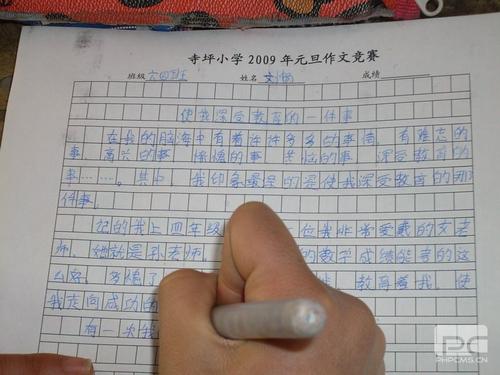 寺坪小学2009年元旦作文竞赛
班级 六四班 姓名 成绩
使我深受教育的一件事
在我的脑海中有着许许多多的事情,有难忘的
事、高兴的事、懊恼的事,深受教育的
事……。其中,我印象最深的是使我深受教育的那
件事。
记的我上四年级 位我非常爱戴的文老
师,她就是孙老师。 的数学成绩能考的这
么好,多亏了 教育着我,使
我走向成功的
有一次我
PHPCMS.CN